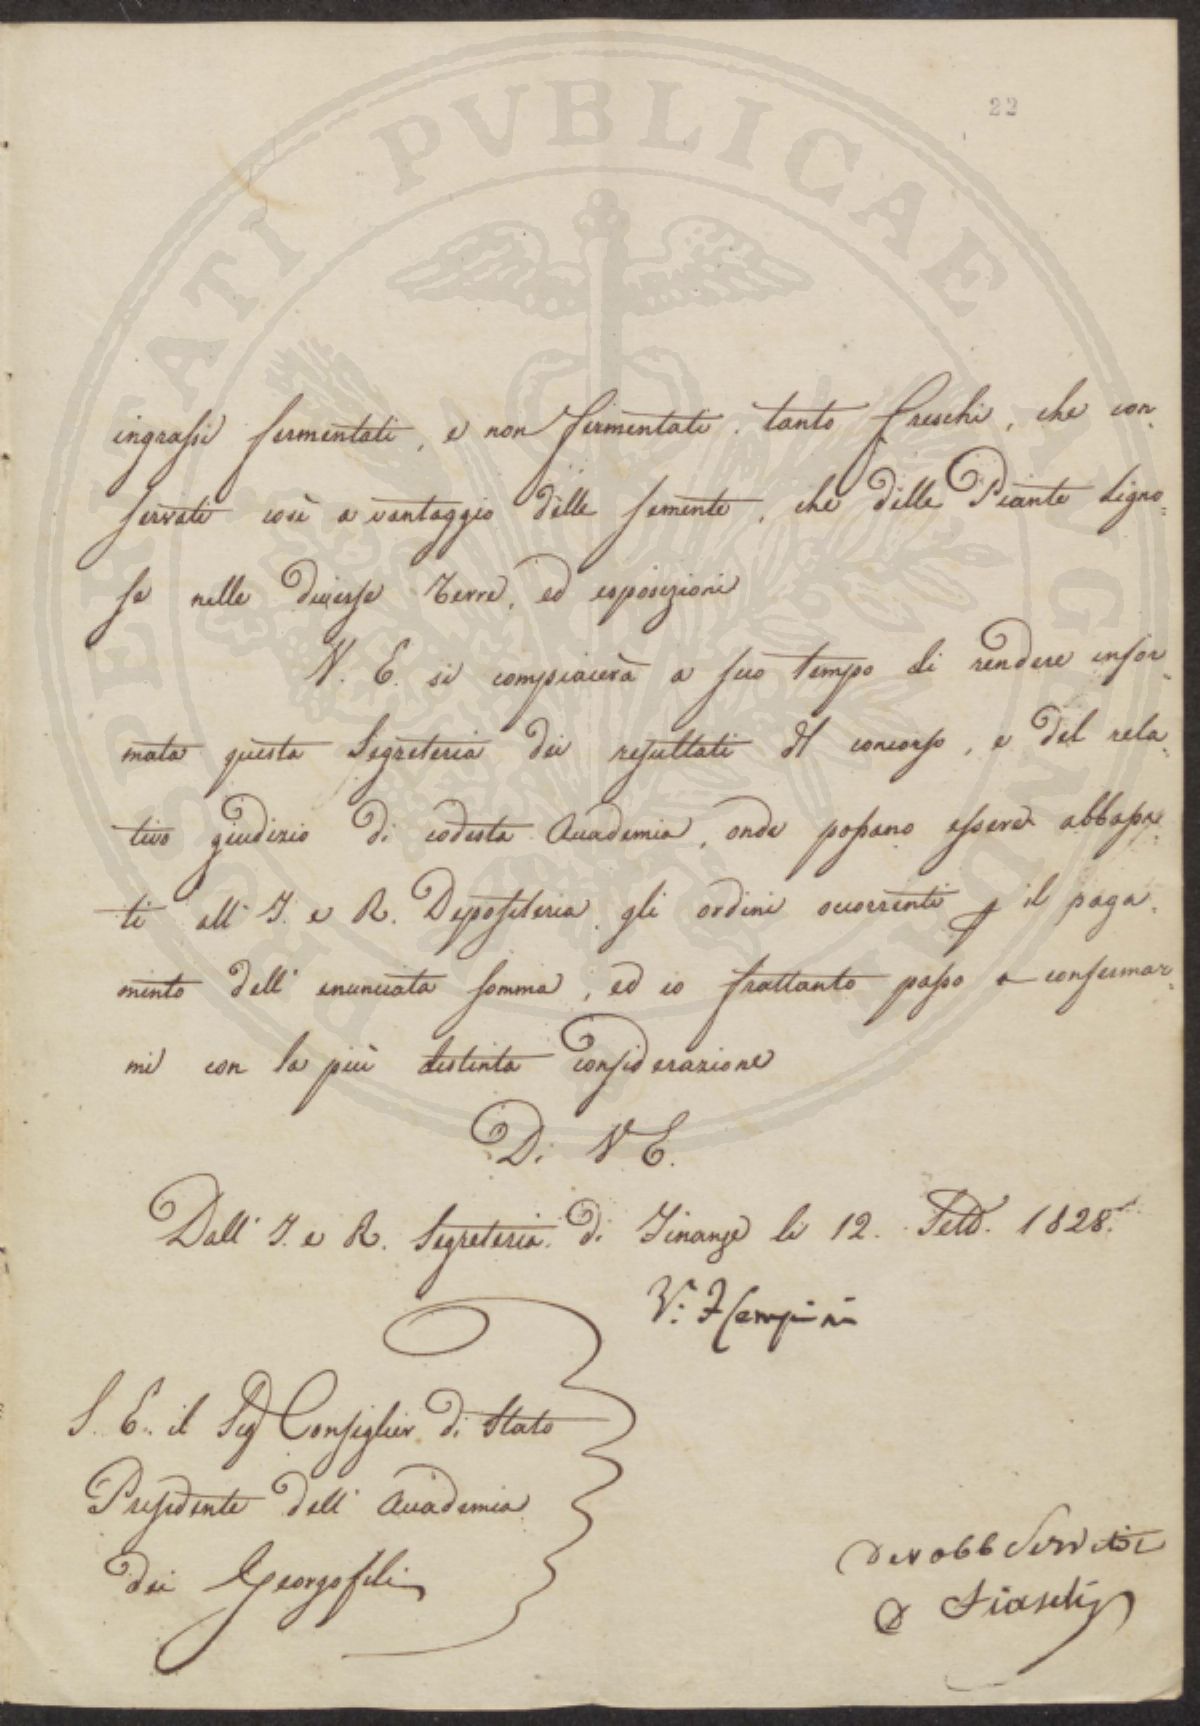 22
ingrassi fermentati, e non fermentati tanto freschi, che con=
servati così a vantaggio delle semente, che delle Piante Ligno=
se nelle diverse Terre, ed esposizioni
V. E. si compiacerà a suo tempo di rendere infor=
mata questa Segreteria dei resultati del concorso, e del rela=
tivo giudizio di codesta Accademia, onde possano essere abbassa=
ti all' I. e R. Depositeria gli ordini occorrenti p il paga=
mento dell' enunciata somma, ed io frattanto passo a confermar=
mi con la più distinta considerazione
D. V E.
Dall' I. e R. Segreteria di Finanze li 12. Febb. 1828.
V. F Cempini
S. E. il Sig Consiglier di Stato
Presidente dell' Accademia
dei Georgofili
Dev obb Servitore
PERITATI PUBLICAE AUGENDAE